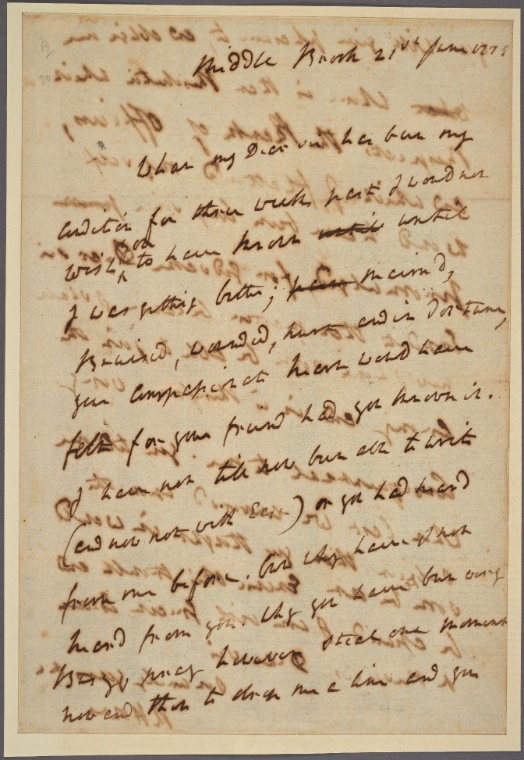 Middle Brook 21st June 1779
What my Dear Sir has been my
condition for three weeks past I would not
wish you to have known until until
I was getting better; maimed,
Bruised, wounded, hurt and in Torture,
your compassionate heart would have
felt for your friend had you known it.
I have not till now been able to write
(and now not with Ease) or you had heard
from me before. but why have I not
heard from you. Why you have been very
Busy pray however steal one moment
now and then to drop me a line and you